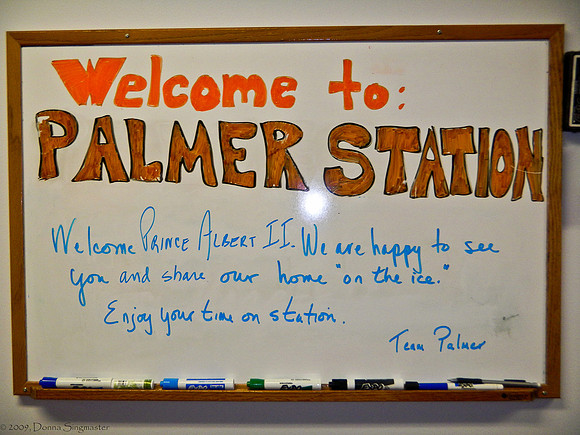 Welcome to:
PALMER STATION
Welcome PRINCE ALBERT II. We are happy to see
you and share our home "on the ice."
Enjoy your time on station.
Team Palmer
© 2009, Donna Singmaster